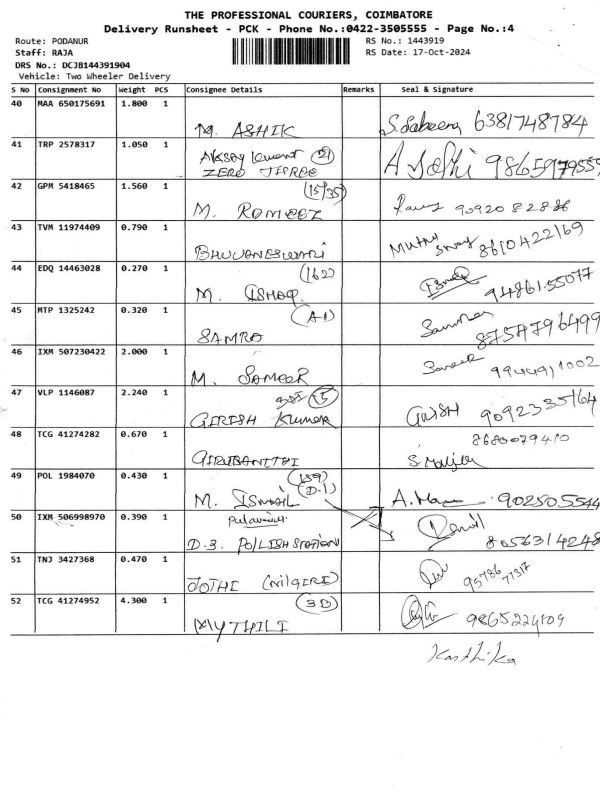 THE PROFESSIONAL COURIERS, COIMBATORE
Delivery Runsheet - PCK - Phone No.:0422-3505555 - Page No.:4
Route: PODANUR RS No.: 1443919
Staff: RAJA RS Date: 17-Oct-2024
DRS No.: DCJB144391904
Vehicle: Two Wheeler Delivery
S No Consignment No Weight PCS Consignee Details Remarks Seal & Signature
40 MAA 650175691 1.800 1
M. ASHIK 6381748784
41 TRP 2578317 1.050 1
(21)
ZERO THREE
42 GPM 5418465 1.560 1
(15/35)
M. ROMEEZ 9092082886
43 TVM 11974409 0.790 1
BHUVANESWARI 8610422169
44 EDQ 14463028 0.270 1
(162)
M. ISHAQ 9486155077
45 MTP 1325242 0.320 1
(A1)
SAMRA 8754796499
46 IXM 507230422 2.000 1
M. SAMEER 9944911002
47 VLP 1146087 2.240 1
GIRISH KUMAR GIRISH 9092335164
48 TCG 41274282 0.670 1
8680079410
GIRUBANITHI
49 POL 1984070 0.430 1
(159)
(D-1)
M. ISMAIL 902505544
50 IXM 506998970 0.390 1
D.3. POLLISH STATION 8056314248
51 TNJ 3427368 0.470 1
JOTHI (NILGIRI)
52 TCG 41274952 4.300 1
(3B)
MYTHILI
Karthika